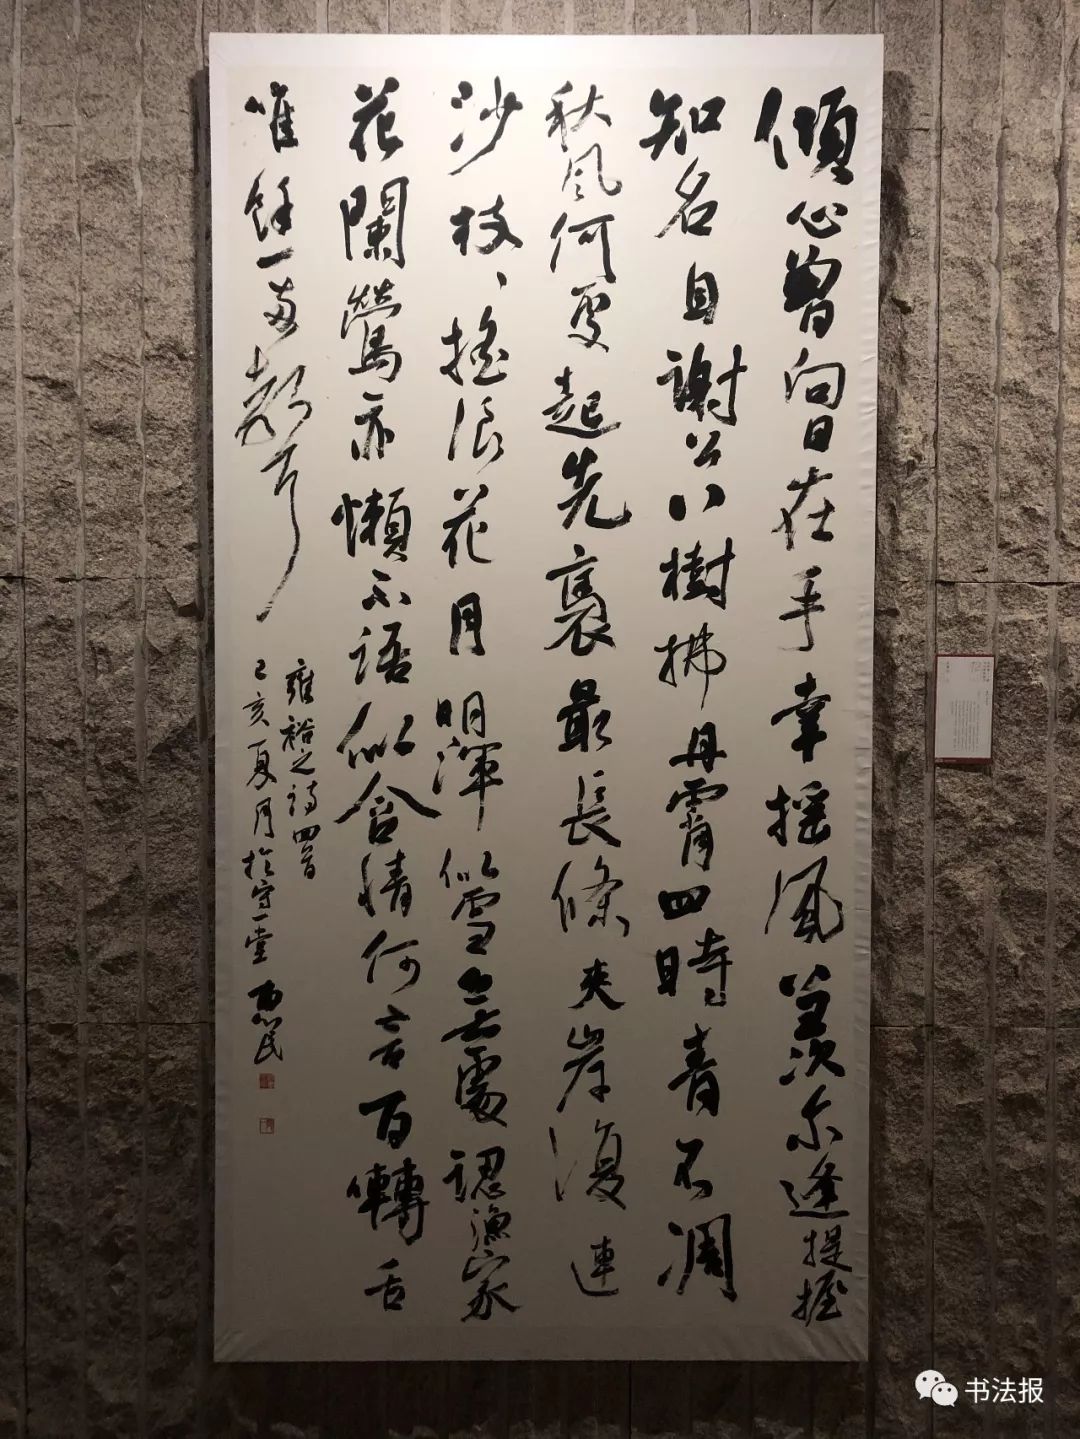 傾心曾向日在手幸摇風羨尔逢提握
知名自謝公八樹拂丹霄四時青不凋
秋風何處起先裊最長條夾岸復連
沙枝、搖浪花月明渾似雪無處認漁家
花闌鶯亦懶不語似含情何言百囀舌
唯餘一兩聲
雍裕之詩四首
己亥夏月於守一堂
书法报